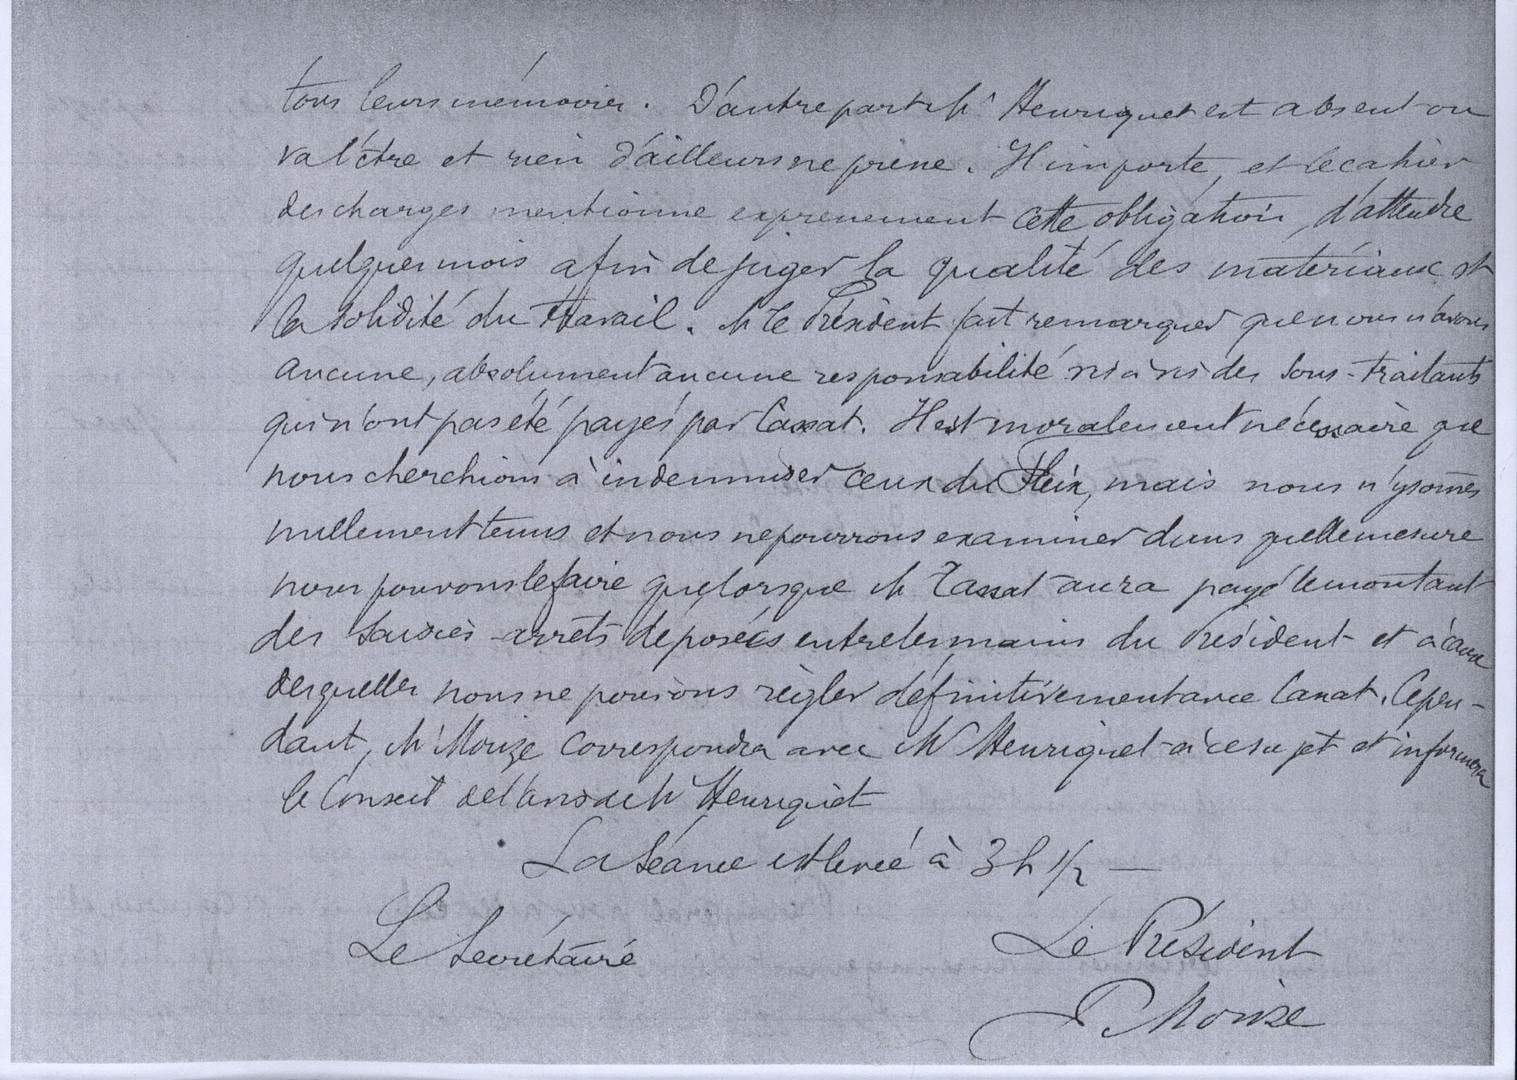 tous leurs mémoires. D'autre part Mr Henriquet est absent ou
va l'être et rien d'ailleurs ne presse. Il importe, et le cahier
des charges mentionne expressement cette obligation, d'attendre
quelques mois afin de juger la qualité des matériaux et
la solidité du travail. Mr le Président fait remarquer que nous n'avons
aucune, absolument aucune responsabilité vis à vis des Sous-traitants
qui n'ont pas été payés par Cassat. Il est moralement nécessaire que
nous cherchions à indemniser ceux du Fleix, mais nous n'y sommes
nullement tenus et nous ne pourrons examiner dans quelle mesure
nous pouvons le faire que lorsque Mr Cassat aura payé le montant
des Saisies-arrêts déposées entre les mains du Président et à cause
desquelles nous ne pouvons règler définitivement avec Cassat. Cepen-
dant, Mr Moize correspondra avec Mr Henriquet à ce sujet et informera
le Conseil de l'avis de Mr Henriquet
La Séance est levée à 3h 1/2 —
Le Secrétaire Le Président
Moize